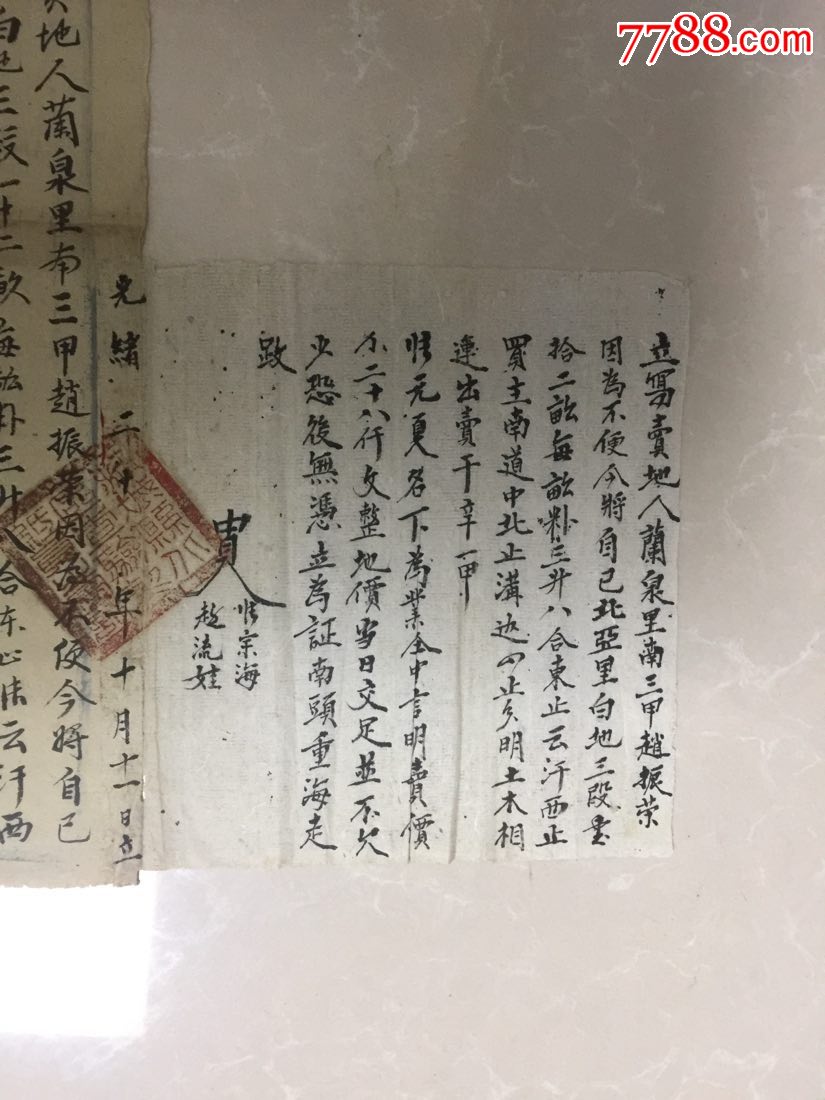 7788.com
立寫賣地人蘭泉里南三甲趙振荣
因為不便今將自己北亞里白地三段
拾二畝每畝粁三升八合東止云汗西止
買主南道中北止溝边四止分明土木相
連出賣于辛一甲
元夏名下為業仝中言明賣價
二十八仟文整地價当日交足並不欠
少恐後無憑立為証南頭重海走
政
宗海
趙流娃
光緒二十年十月十一日立
地人蘭泉里南三甲趙振荣因為不便今將自己
白地三段一十二畝每畝三升八合东止云汗西